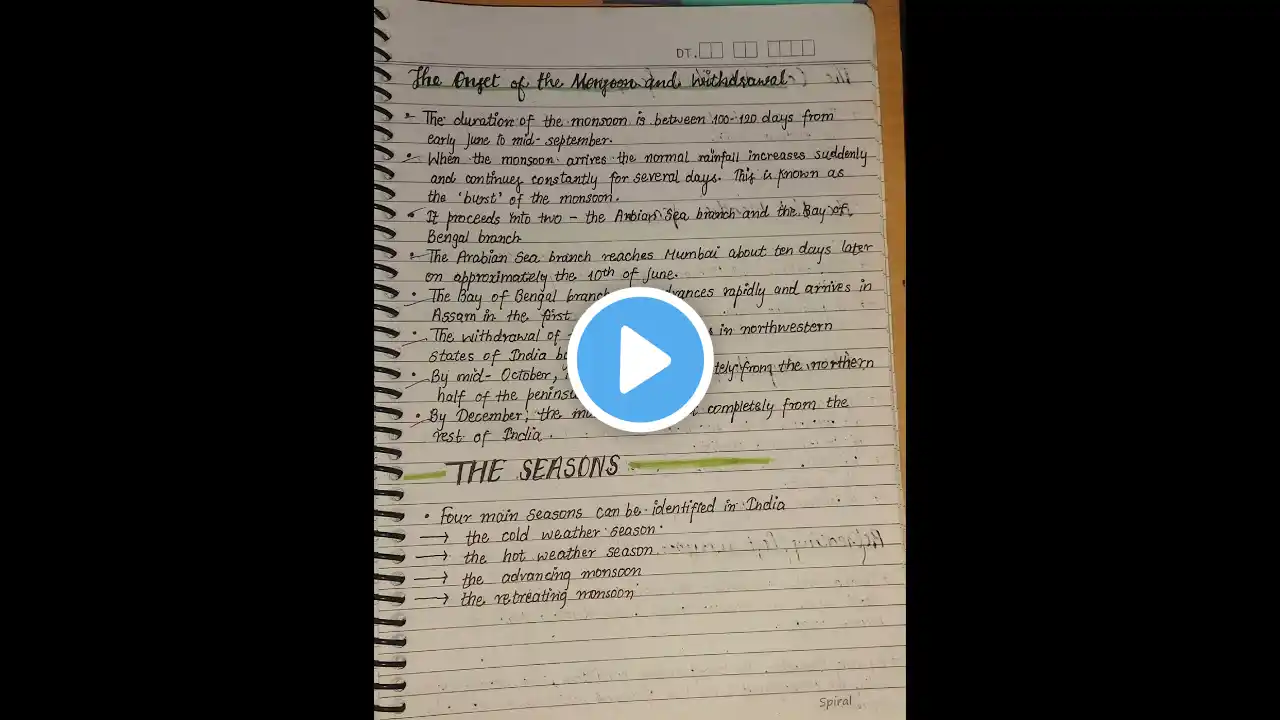 DT.
The Onset of the Monsoon and Withdrawal
The duration of the monsoon is between 100-120 days from
early June to mid-september.
When the monsoon arrives the normal rainfall increases suddenly
and continues constantly for several days. This is known as
the 'burst' of the monsoon.
It proceeds into two - the Arbian Sea branch and the Bay of
Bengal branch
The Arabian Sea branch reaches Mumbai about ten days later
on approximately the 10th of June.
The Bay of Bengal branch rapidly and arrives in
Assam in the first
The withdrawal of in northwestern
states of India
By mid-October, from the northern
half of the
By December, the completely from the
rest of India.
THE SEASONS
• Four main seasons can be identified in India
→ the cold weather season.
→ the hot weather season.
→ the advancing monsoon
→ the retreating monsoon
Spiral